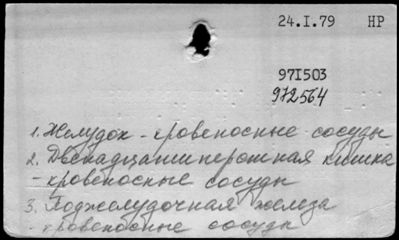 24.I.79 НР
97I503
972564
1. Желудок - кровеносные сосуды
2. Двенадцатиперстная кишка
- кровеносные сосуды
3. Поджелудочная железа
- кровеносные сосуды